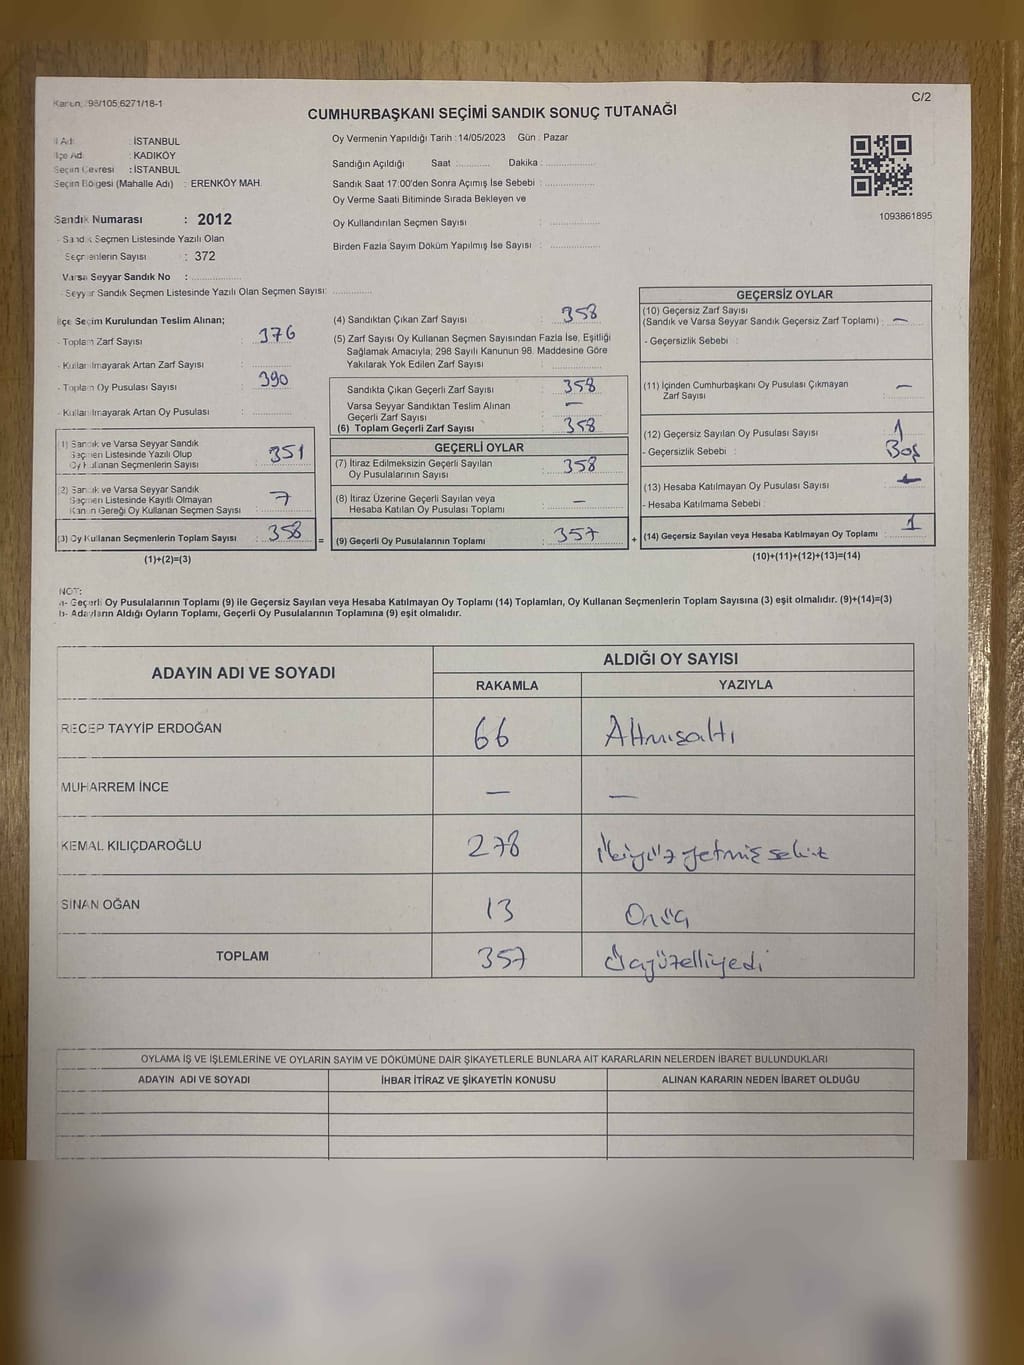 Kanun: 98/105,6271/18-1
C/2
CUMHURBAŞKANI SEÇİMİ SANDIK SONUÇ TUTANAĞI
İl Adı : İSTANBUL
İlçe Adı : KADIKÖY
Seçim Çevresi : İSTANBUL
Seçim Bölgesi (Mahalle Adı) : ERENKÖY MAH.
Sandık Numarası : 2012
- Sandık Seçmen Listesinde Yazılı Olan
Seçmenlerin Sayısı : 372
Varsa Seyyar Sandık No : ..................
- Seyyar Sandık Seçmen Listesinde Yazılı Olan Seçmen Sayısı: ..............
Oy Vermenin Yapıldığı Tarih : 14/05/2023 Gün : Pazar
Sandığın Açıldığı Saat ............ Dakika : ..................
Sandık Saat 17:00'den Sonra Açımış İse Sebebi : ..................
Oy Verme Saati Bitiminde Sırada Bekleyen ve
Oy Kullandırılan Seçmen Sayısı : ..................
Birden Fazla Sayım Döküm Yapılmış İse Sayısı : ..................
1093861895
İlçe Seçim Kurulundan Teslim Alınan;
- Toplam Zarf Sayısı : 376
- Kullanılmayarak Artan Zarf Sayısı : ..................
- Toplam Oy Pusulası Sayısı : 390
- Kullanılmayarak Artan Oy Pusulası : ..................
(1) Sandık ve Varsa Seyyar Sandık
Seçmen Listesinde Yazılı Olup
Oy Kullanan Seçmenlerin Sayısı : 351
(2) Sandık ve Varsa Seyyar Sandık
Seçmen Listesinde Kayıtlı Olmayan
Kanun Gereği Oy Kullanan Seçmen Sayısı : 7
(3) Oy Kullanan Seçmenlerin Toplam Sayısı : 358
(1)+(2)=(3)
=
(4) Sandıktan Çıkan Zarf Sayısı : 358
(5) Zarf Sayısı Oy Kullanan Seçmen Sayısından Fazla İse, Eşitliği
Sağlamak Amacıyla; 298 Sayılı Kanunun 98. Maddesine Göre
Yakılarak Yok Edilen Zarf Sayısı : ..................
Sandıkta Çıkan Geçerli Zarf Sayısı : 358
Varsa Seyyar Sandıktan Teslim Alınan
Geçerli Zarf Sayısı : —
(6) Toplam Geçerli Zarf Sayısı : 358
GEÇERLİ OYLAR
(7) İtiraz Edilmeksizin Geçerli Sayılan
Oy Pusulalarının Sayısı : 358
(8) İtiraz Üzerine Geçerli Sayılan veya
Hesaba Katılan Oy Pusulası Toplamı : —
(9) Geçerli Oy Pusulalarının Toplamı : 357
+
GEÇERSİZ OYLAR
(10) Geçersiz Zarf Sayısı
(Sandık ve Varsa Seyyar Sandık Geçersiz Zarf Toplamı) : —
- Geçersizlik Sebebi :
(11) İçinden Cumhurbaşkanı Oy Pusulası Çıkmayan
Zarf Sayısı : —
(12) Geçersiz Sayılan Oy Pusulası Sayısı : 1
- Geçersizlik Sebebi : Boş
(13) Hesaba Katılmayan Oy Pusulası Sayısı : —
- Hesaba Katılmama Sebebi :
(14) Geçersiz Sayılan veya Hesaba Katılmayan Oy Toplamı : 1
(10)+(11)+(12)+(13)=(14)
NOT:
a- Geçerli Oy Pusulalarının Toplamı (9) ile Geçersiz Sayılan veya Hesaba Katılmayan Oy Toplamı (14) Toplamları, Oy Kullanan Seçmenlerin Toplam Sayısına (3) eşit olmalıdır. (9)+(14)=(3)
b- Adayların Aldığı Oyların Toplamı, Geçerli Oy Pusulalarının Toplamına (9) eşit olmalıdır.
ADAYIN ADI VE SOYADI
ALDIĞI OY SAYISI
RAKAMLA YAZIYLA
RECEP TAYYİP ERDOĞAN 66 Altmışaltı
MUHARREM İNCE — —
KEMAL KILIÇDAROĞLU 278 ikiyüz yetmiş sekiz
SİNAN OĞAN 13 Onüç
TOPLAM 357 Üçyüzelliyedi
OYLAMA İŞ VE İŞLEMLERİNE VE OYLARIN SAYIM VE DÖKÜMÜNE DAİR ŞİKAYETLERLE BUNLARA AİT KARARLARIN NELERDEN İBARET BULUNDUKLARI
ADAYIN ADI VE SOYADI İHBAR İTİRAZ VE ŞİKAYETİN KONUSU ALINAN KARARIN NEDEN İBARET OLDUĞU